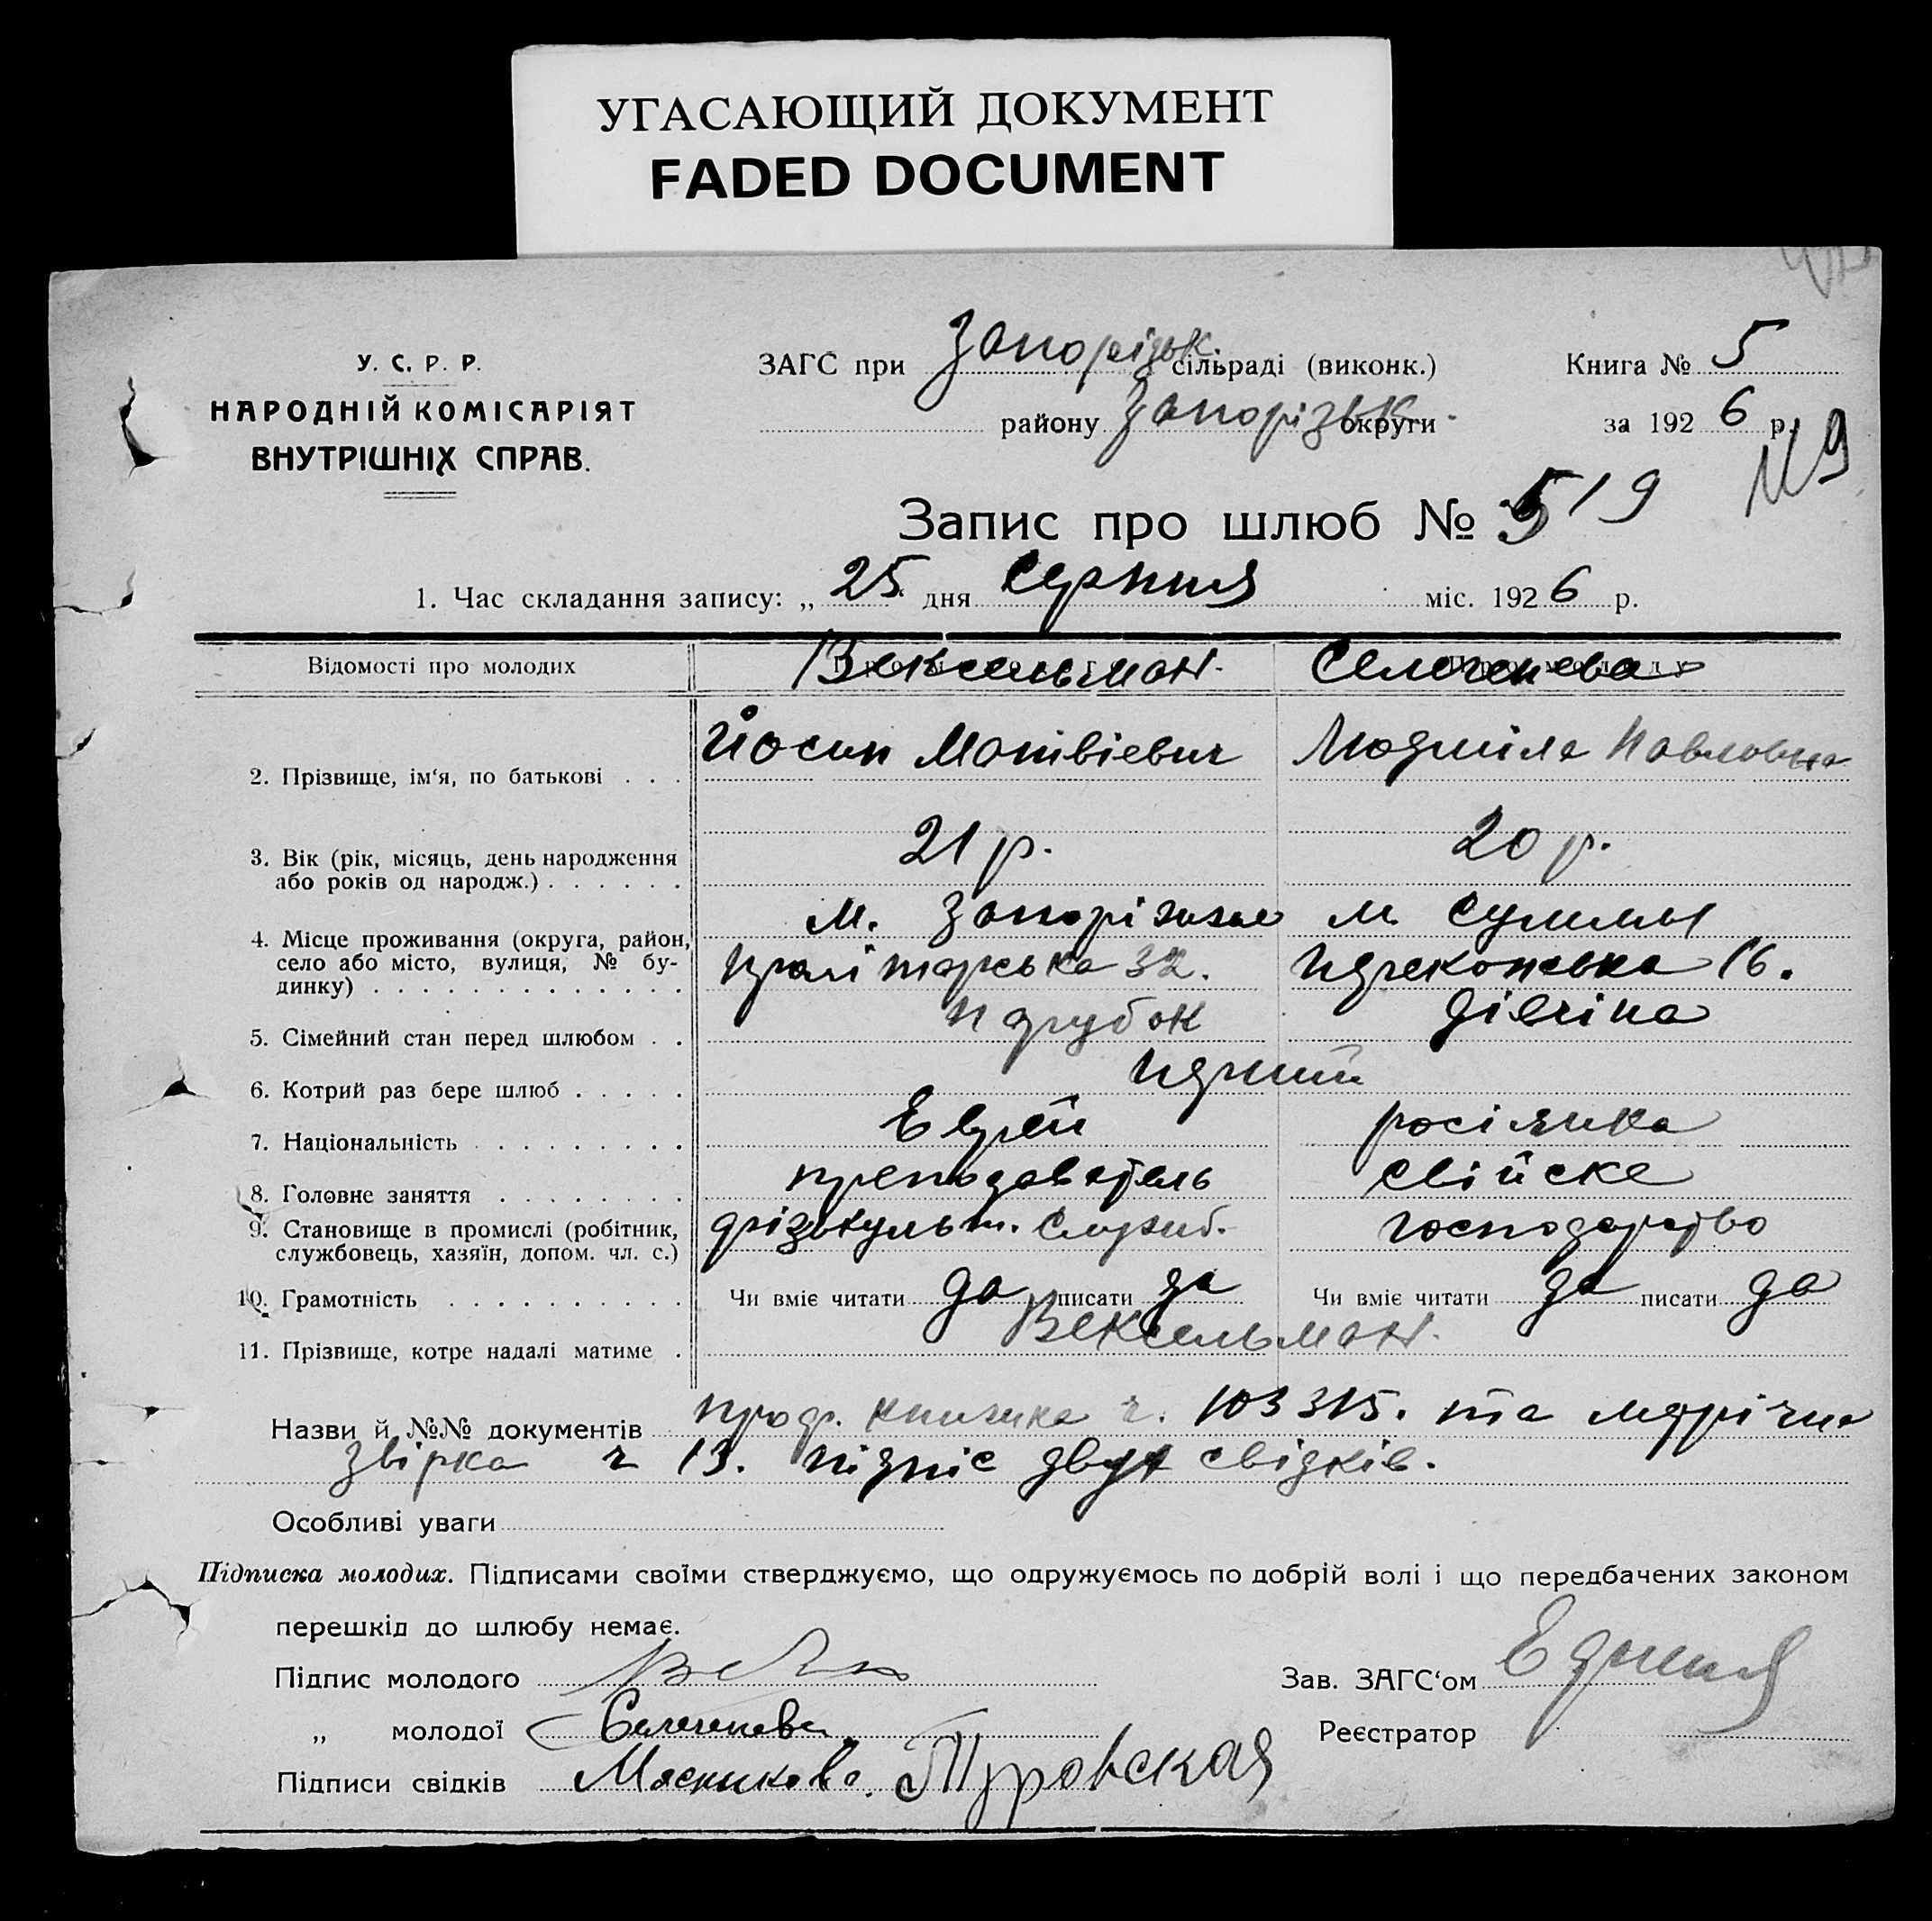 УГАСАЮЩИЙ ДОКУМЕНТ
FADED DOCUMENT
У. С. Р. Р.
НАРОДНІЙ КОМІСАРІЯТ
ВНУТРІШНІХ СПРАВ.
ЗАГС при Запорізьк. сільраді (виконк.)
району Запорізьк. округи
Книга № 5
за 1926 р.
Запис про шлюб № 519
1. Час складання запису: „ 25 дня Серпня міс. 1926 р.
Відомості про молодих Вексельман. Селегенева
2. Прізвище, ім‘я, по батькові . . . Йосип Матвієвич Людміла Павловна
3. Вік (рік, місяць, день народження 21 р. 20 р.
або років од народж.) . . . . . .
4. Місце проживання (округа, район, м. Запоріжже м. Сумы
село або місто, вулиця, № бу- 32. 16.
динку) . . . . . . . . . . . . .
5. Сімейний стан перед шлюбом . . парубок дівчіна
6. Котрий раз бере шлюб . . . . . перший
7. Національність . . . . . . . . . Еврей росіянка
8. Головне заняття . . . . . . . . преподаватель свійске
9. Становище в промислі (робітник, фізкульт. Служб. господарство
службовець, хазяїн, допом. чл. с.)
10. Грамотність . . . . . . . . . . Чи вміє читати да писати да Чи вміє читати да писати да
11. Прізвище, котре надалі матиме . Вексельман.
Назви й №№ документів проф. книжка ч. 103315. та метрічна
звірка ч 13. підпіс двух свідків.
Особливі уваги
Підписка молодих. Підписами своїми стверджуємо, що одружуємось по добрій волі і що передбачених законом
перешкід до шлюбу немає.
Підпис молодого
Зав. ЗАГС‘ом
„ молодої Селегенева
Реєстратор
Підписи свідків Мясникова. Туровская